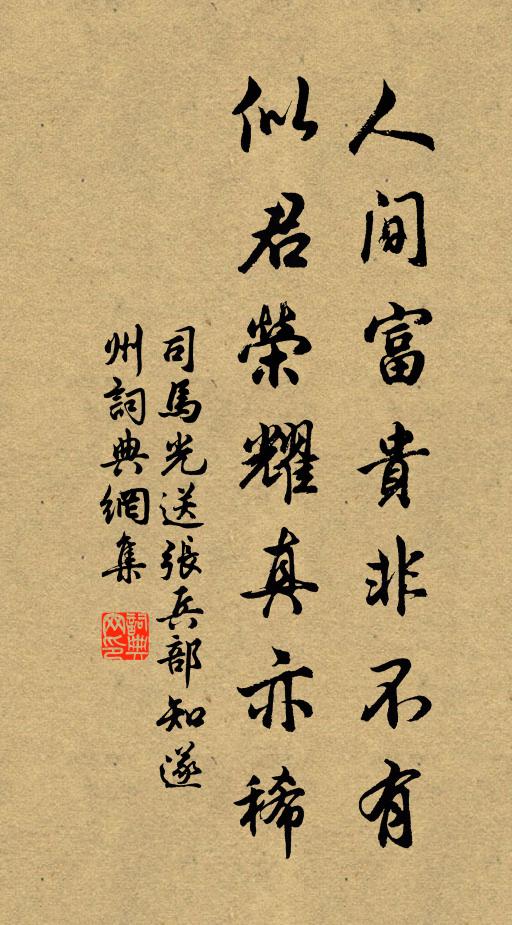 人间富貴非不有
似君榮耀真亦稀
司馬光送張兵部知遂
州詞典網集
詞典网印